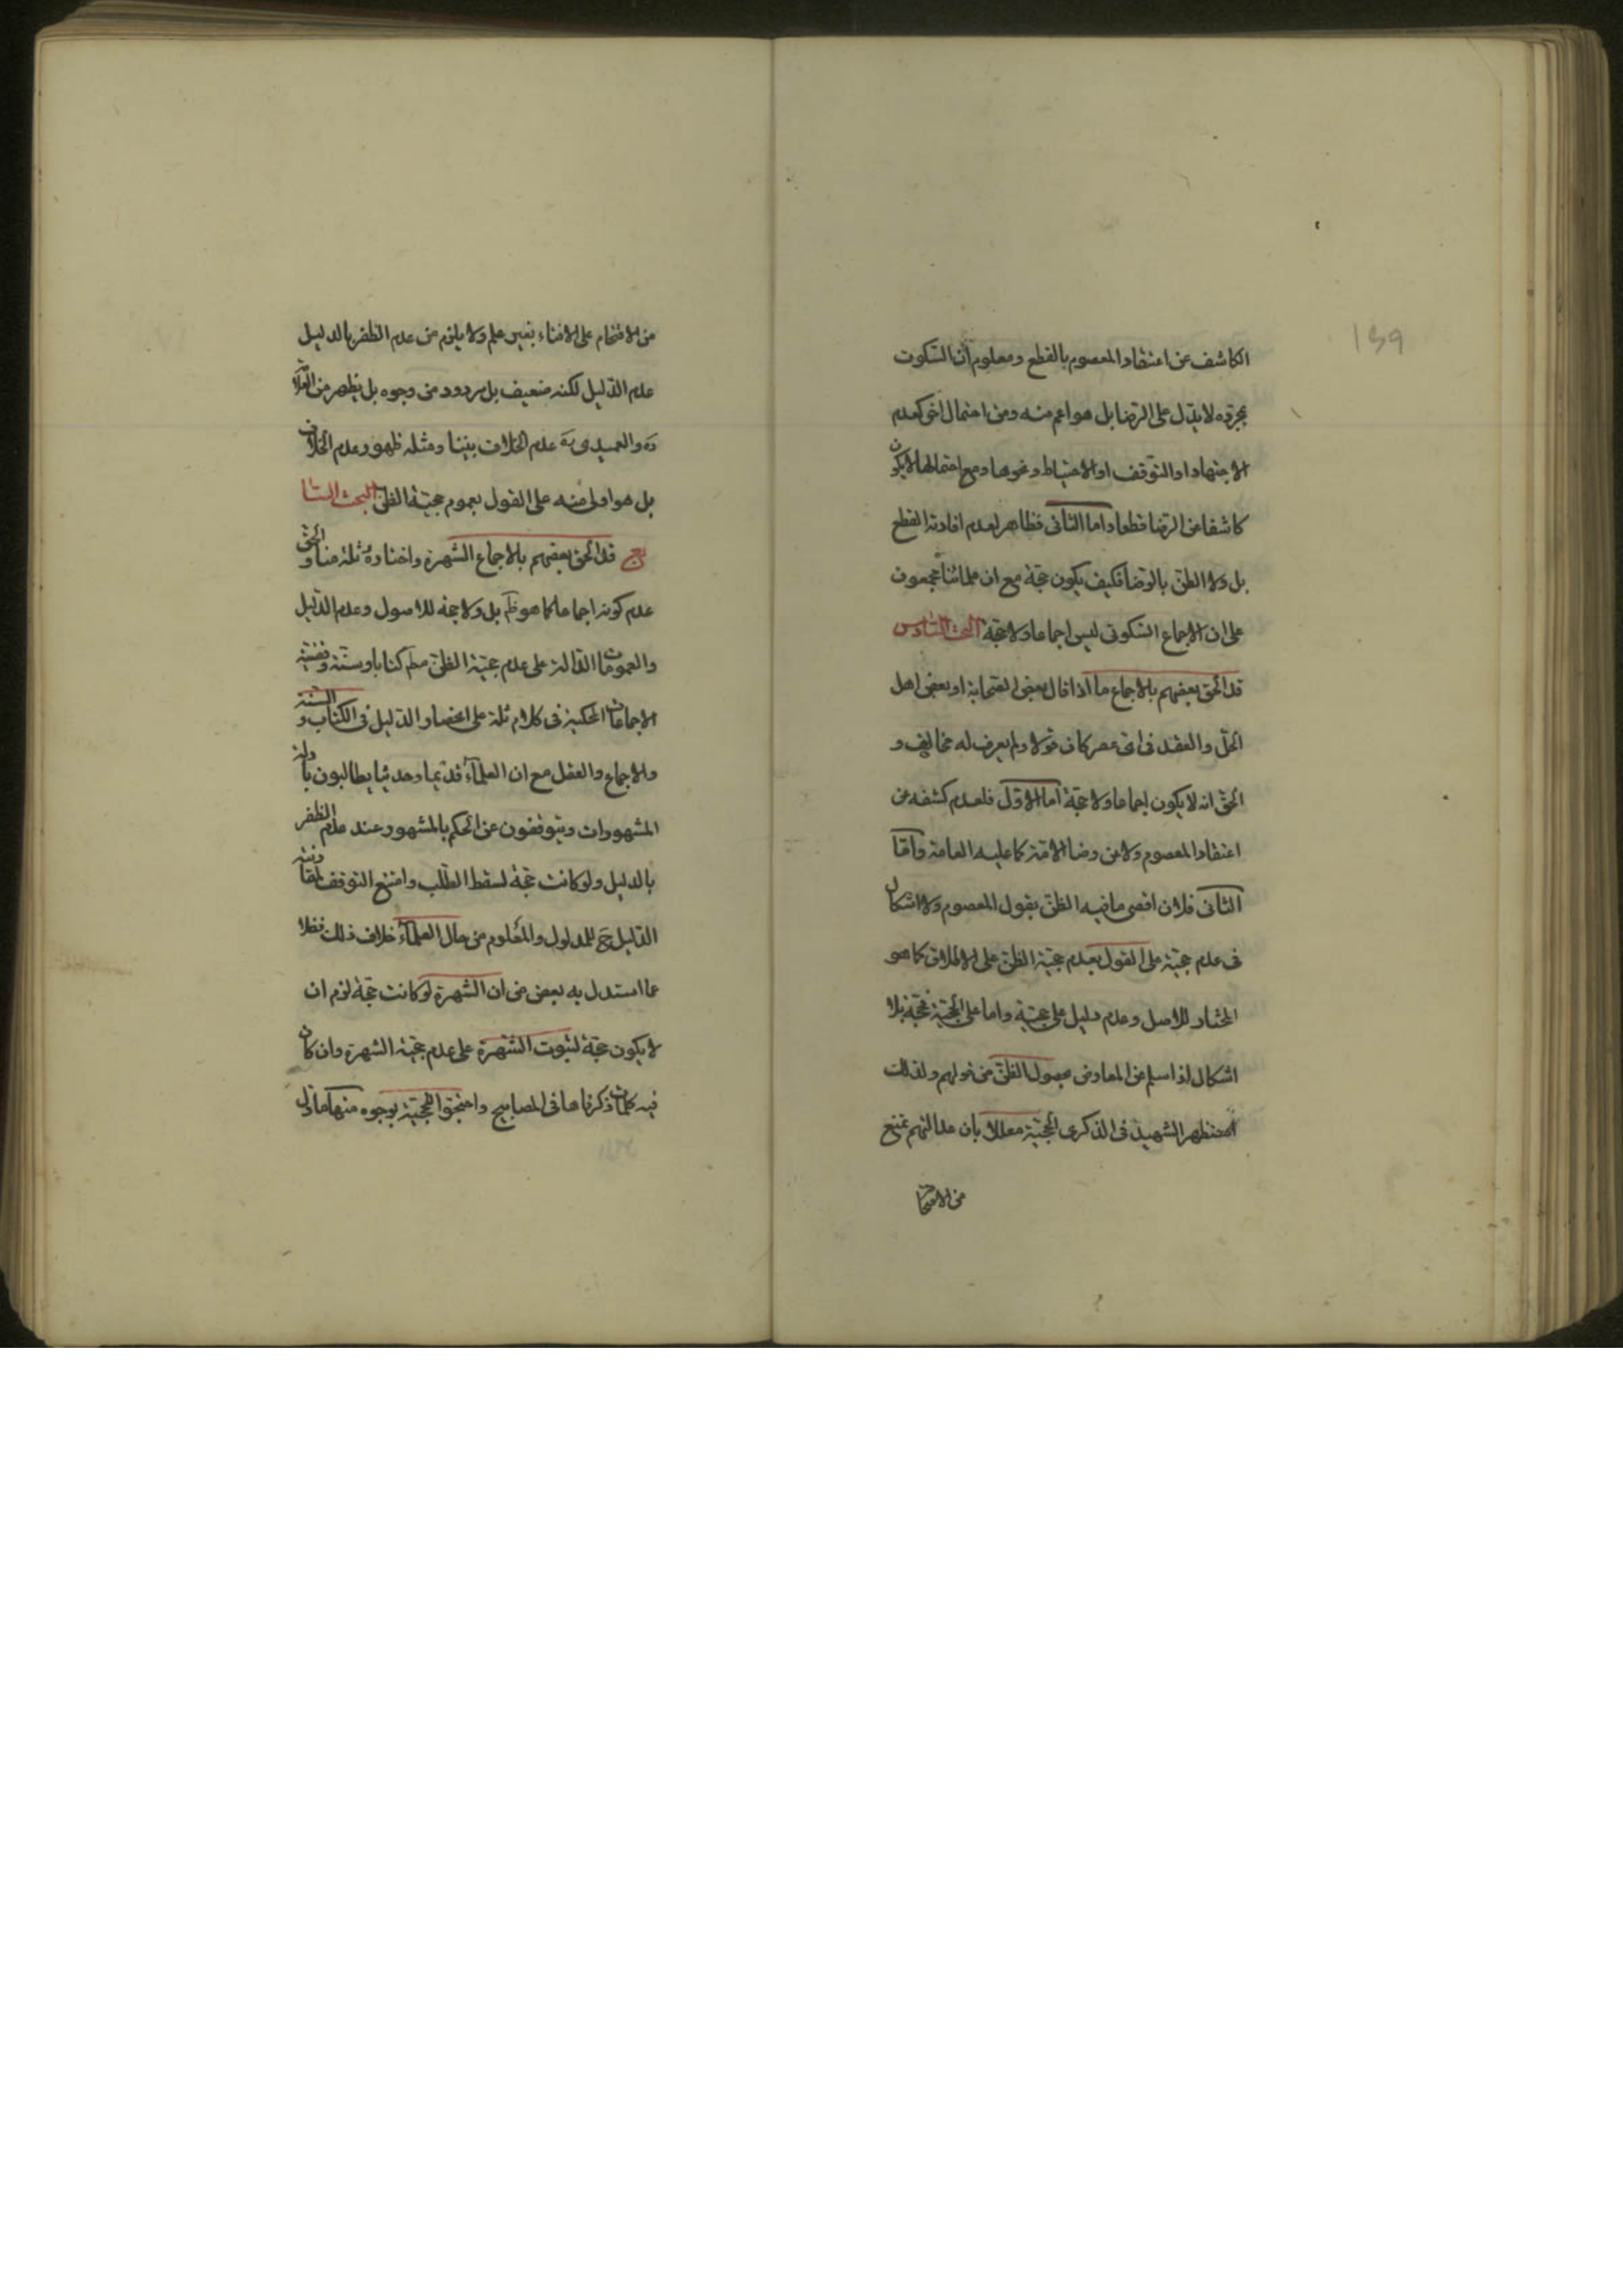 139
الكاشف عن اعتقاد المعصوم بالقطع ومعلوم ان السكوت
بمجرده لا يدل على الرضا بل هو اعم منه ومن احتمال اخر كعدم
الاجتهاد او التوقف او الاحتياط ونحوها ومع احتمالها لا يكون
كاشفا عن الرضا قطعا واما الثانى فظاهر لعدم افادته القطع
بل ولا الظن بالرضا فكيف يكون حجة مع ان علمائنا مجمعون
على ان الاجماع السكوتى ليس اجماعا ولا حجة البحث السادس
قد الحق بعضهم بالاجماع ما اذا قال بعض الصحابة او بعض اهل
الحل والعقد فى اى عصر كان قولا ولم يعرف له مخالف و
الحق انه لا يكون اجماعا ولا حجة اما الاول فلعدم كشفه عن
اعتقاد المعصوم ولا عن رضا الامة كما عليه العامة واما
الثانى فلان اقصى ما فيه الظن بقول المعصوم ولا اشكال
فى عدم حجيته على القول بعدم حجية الظن على الاطلاق كما هو
المختار للاصل وعدم دليل على حجيته واما على الحجية فحجة بلا
اشكال اذا سلم عن المعارض لحصول الظن من قولهم ولذلك
استظهر الشهيد فى الذكرى الحجية معللا بان عدالتهم تمنع
من الاقتحام
من الاقتحام على الافتاء بغير علم ولا يلزم من عدم الظفر بالدليل
عدم الدليل لكنه ضعيف بل مردود من وجوه بل يظهر من العلامة
ره والعميدى ره عدم الخلاف بيننا ومثله ظهور عدم الخلاف
بل هو اولى منه على القول بعموم حجية الظن البحث السا
بع قد الحق بعضهم بالاجماع الشهرة واختاره ثلة منا والحق
عدم كونه اجماعا كما هو ظ بل ولا حجة للاصول وعدم الدليل
والعمومات الدالة على عدم حجية الظن مط كتابا وسنة وقضية
الاجماعات المحكية فى كلام ثلة على انحصار الدليل فى الكتاب والسنة
والاجماع والعقل مع ان العلماء قديما وحديثا يطالبون بادلة
المشهورات ويتوقفون عن الحكم بالمشهور عند عدم الظفر
بالدليل ولو كانت حجة لسقط الطلب وامتنع التوقف لمقارنته
الدليل ح للمدلول والمعلوم من حال العلماء خلاف ذلك فضلا
عما استدل به بعض من ان الشهرة لو كانت حجة لزم ان
لا يكون حجة لثبوت الشهرة على عدم حجية الشهرة وان كان
فيه كلمات ذكرناها فى المصابيح واحتجوا للحجية بوجوه منها ما دل